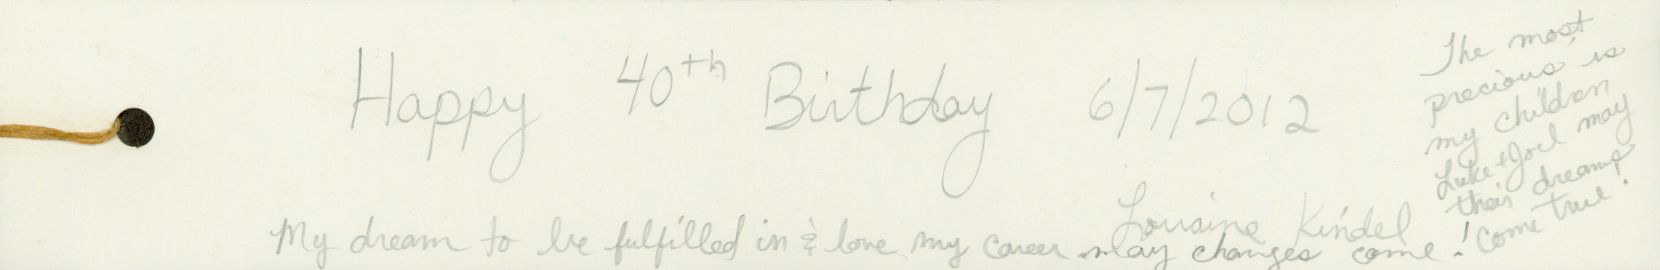 Happy 40th Birthday 6/7/2012
Lorraine Kindel
My dream to be fulfilled in & love my career may changes come!
The most
precious is
my children
Luke + Joel may
their dreams
come true!